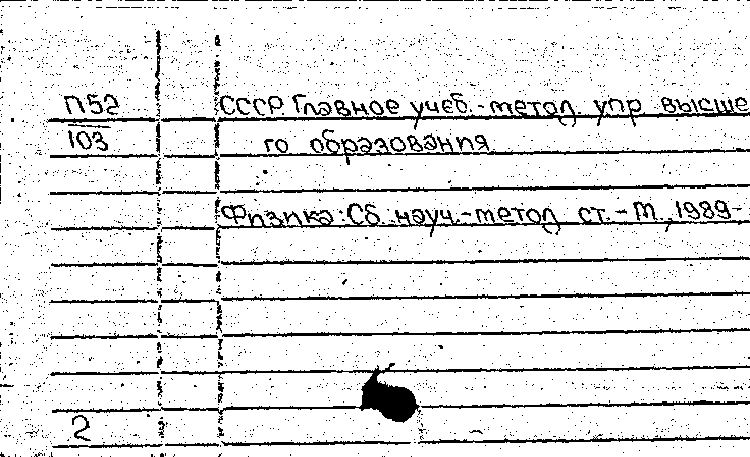 П52
103
СССР. Главное учеб.-метод. упр. высше
го образования
Физика: Сб. науч.-метод. ст. - М., 1989-
2